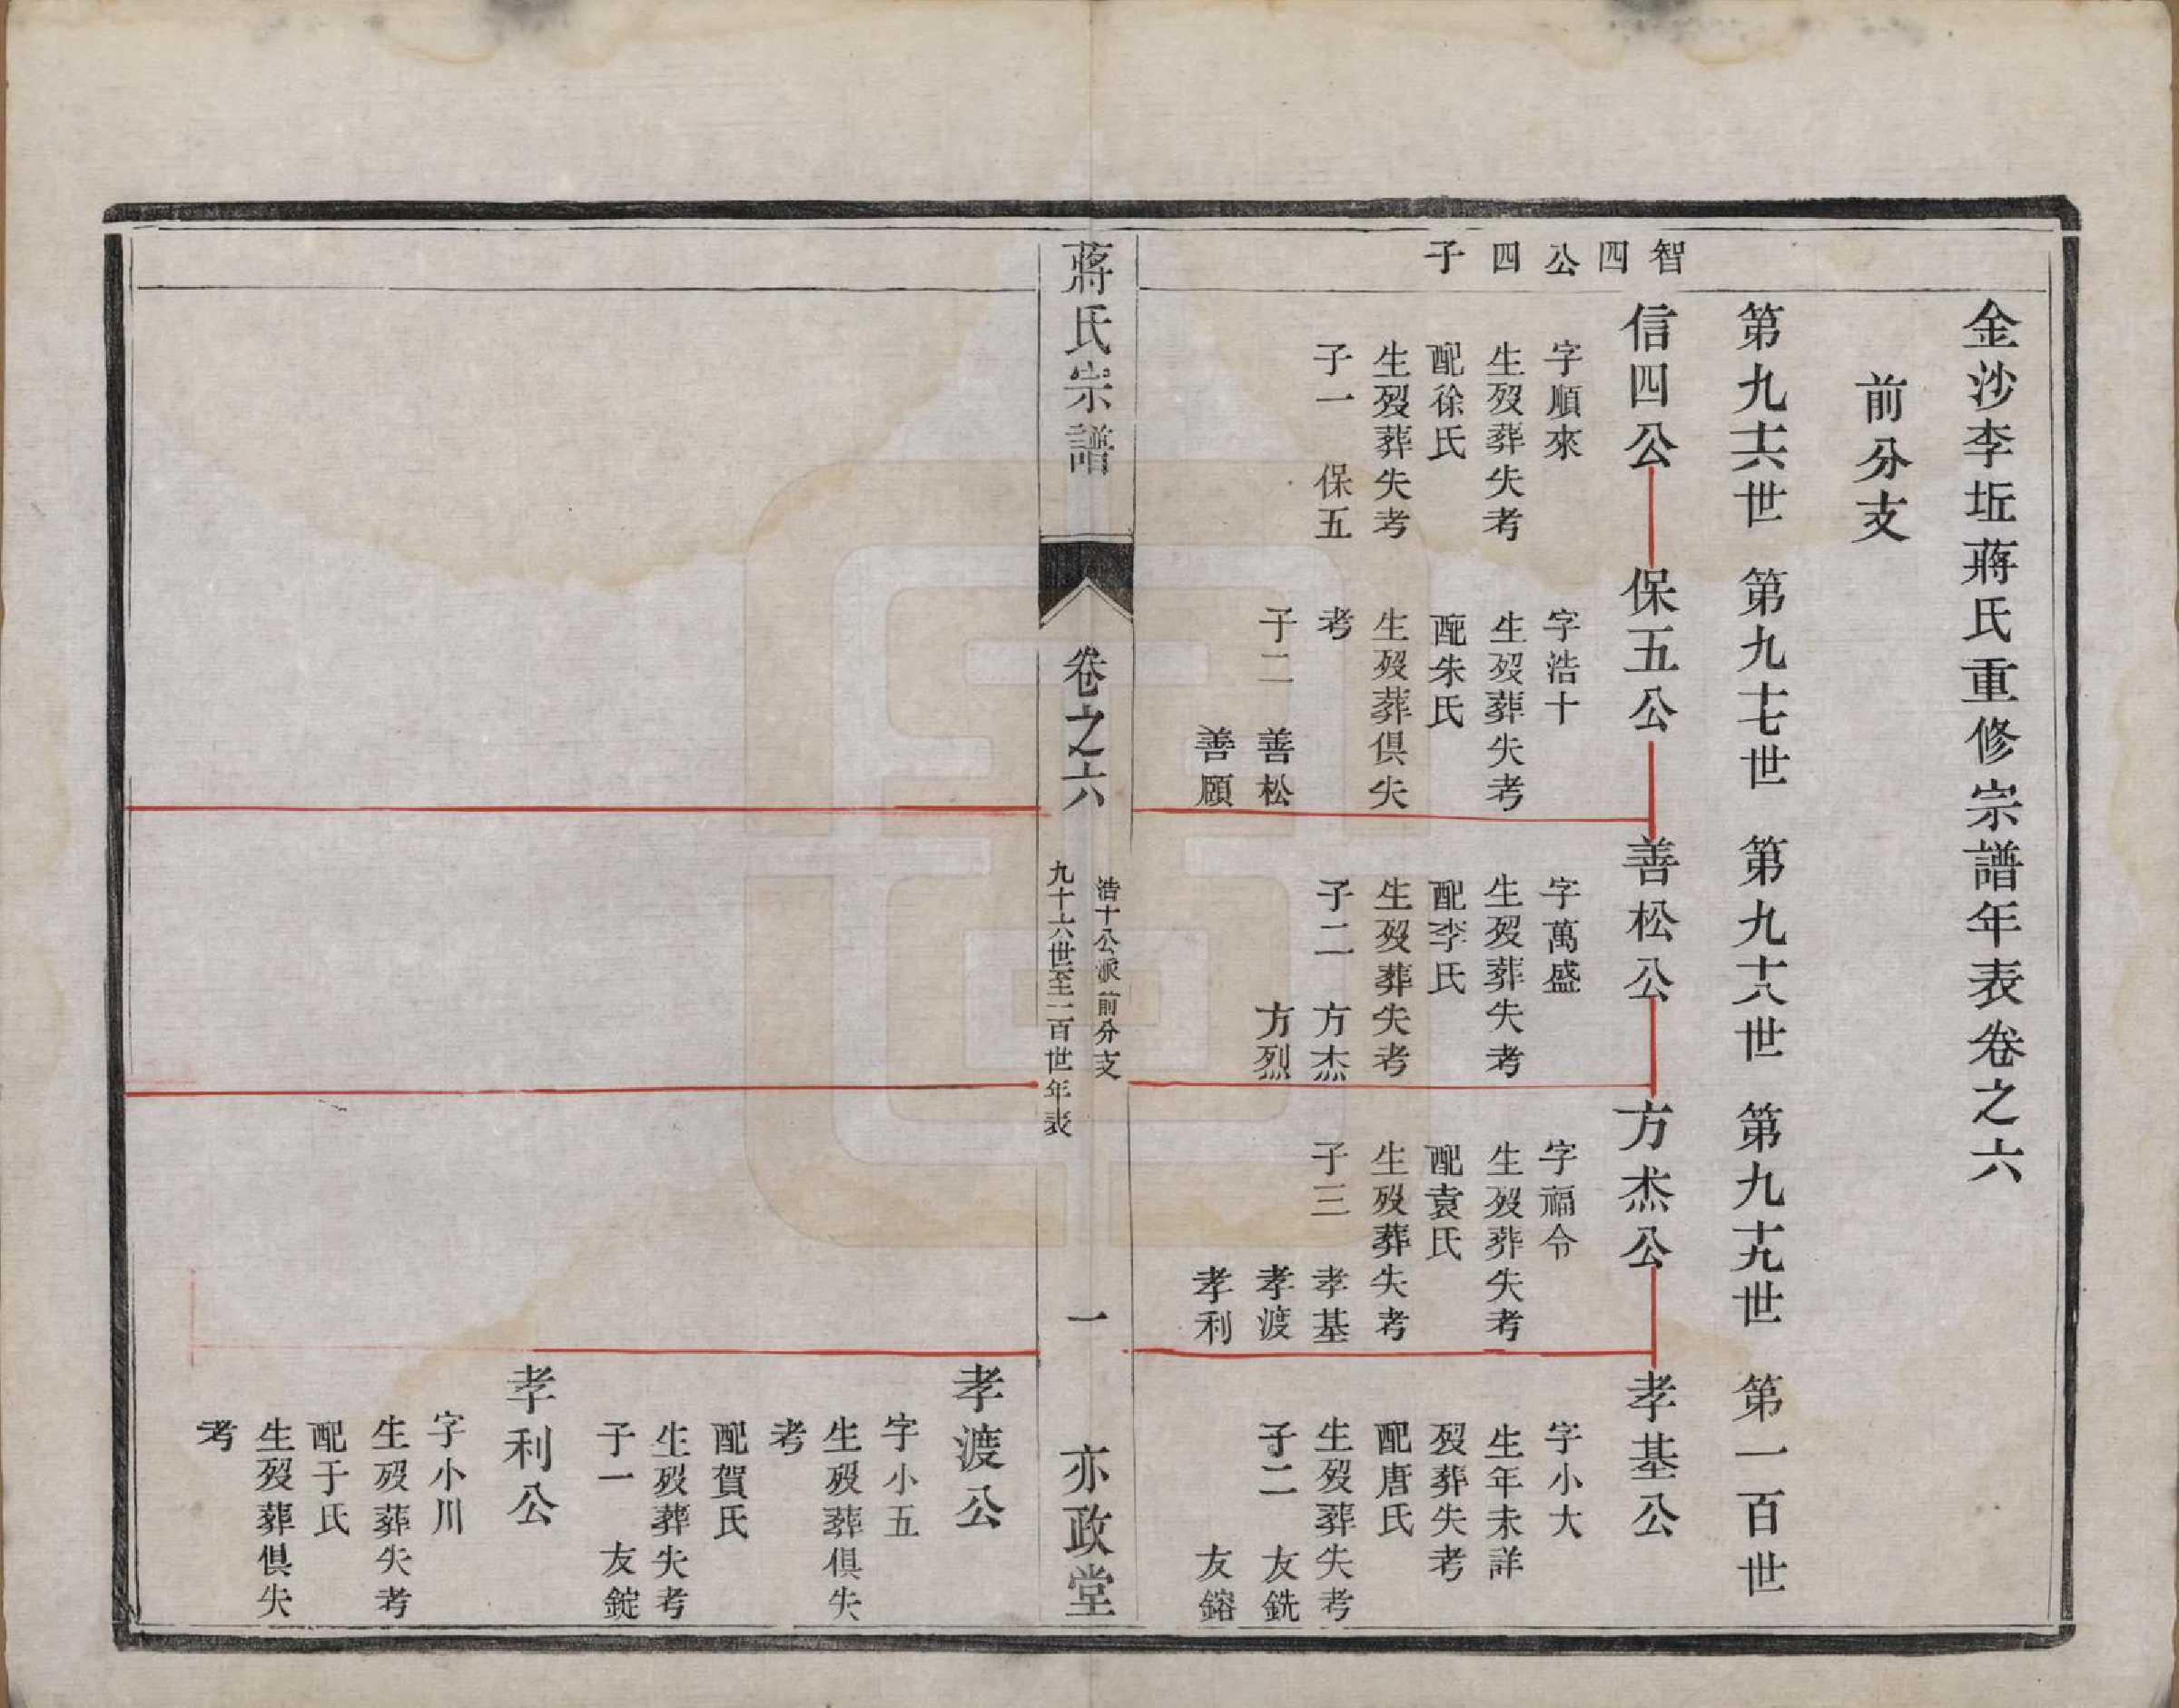 金沙李坵蔣氏重修宗譜年表卷之六
前分支
第九十六世
第九十七世
第九十八世
第九十九世
第一百世
智四公四子
信四公
字順來
生歿葬失考
配徐氏
生歿葬失考
子一 保五
保五公
字浩十
生歿葬失考
配朱氏
生歿葬俱失
考
子二 善松
善願
善松公
字萬盛
生歿葬失考
配李氏
生歿葬失考
子二 方杰
方烈
方杰公
字福令
生歿葬失考
配袁氏
生歿葬失考
子三 孝基
孝渡
孝利
孝基公
字小大
生年未詳
歿葬失考
配唐氏
生歿葬失考
子二 友銑
友鎔
蔣氏宗譜
卷之六
浩十公派前分支
九十六世至一百世年表
一
亦政堂
孝渡公
字小五
生歿葬俱失
考
配賀氏
生歿葬失考
子一 友錠
孝利公
字小川
生歿葬失考
配于氏
生歿葬俱失
考